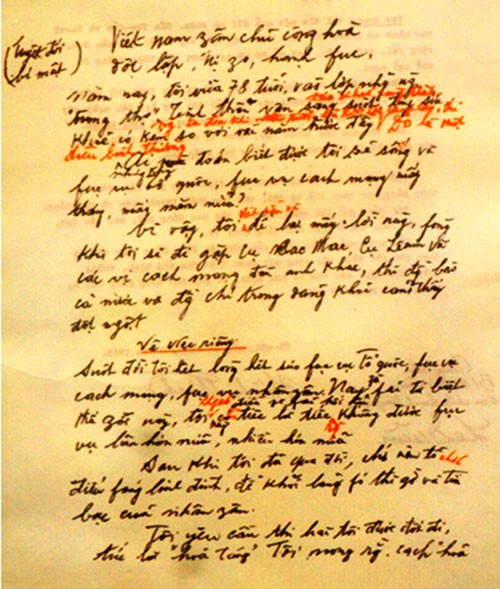 (tuyệt đối
bí mật)
Việt nam zân chủ cộng hoà
độc lập, tự zo, hạnh fúc,
Năm nay, tôi vừa 78 tuổi, vào lớp những ng
"trung thọ". Tinh thần vẫn sáng suốt, thân
khoẻ, có kém so với vài năm trước đây. Đó là một
điều bình thường
Ai mà đoán biết được tôi sẽ sống và
fục vụ tổ quốc, fục vụ cách mạng mấy
tháng, mấy năm nữa?
Vì vậy, tôi để lại mấy lời này, fòng
khi tôi sẽ đi gặp cụ Các Mác, cụ Lênin và
các vị cách mạng đàn anh khác, thì đg bào
cả nước và đg chí trong đảng khỏi cảm thấy
đột ngột.
Về việc riêng
Suốt đời tôi hết lòng hết sức fục vụ Tổ quốc, fục vụ
cách mạng, fục vụ nhân zân. Nay fải từ biệt
thế zới này, tôi tiếc là tiếc không được fục
vụ lâu hơn nữa, nhiều hơn nữa
Sau khi tôi đã qua đời, chớ nên tổ chức
điếu fúng linh đình, để khỏi lãng fí thì zờ và tiền
bạc của nhân zân.
Tôi yêu cầu thi hài tôi được đốt đi,
tức là "hoả táng" Tôi mong rg. cách hoả